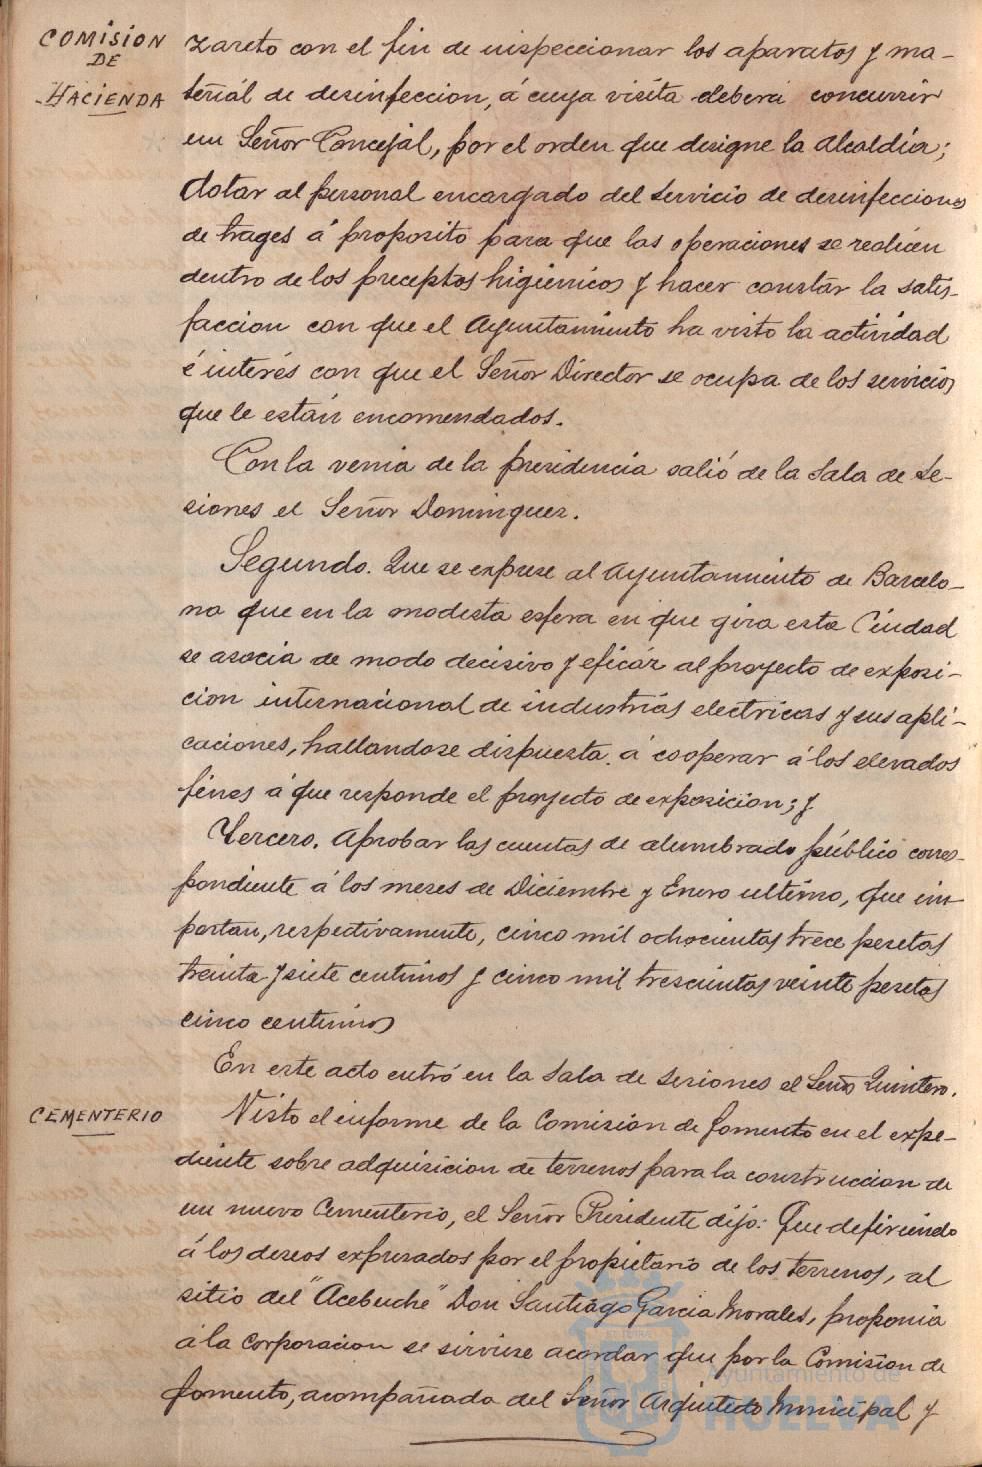 COMISION
DE
HACIENDA
zareto con el fin de inspeccionar los aparatos y ma-
terial de desinfeccion, á cuya visita deberá concurrir
un Señor Concejal, por el orden que designe la Alcaldía;
dotar al personal encargado del servicio de desinfecciones
de trages á proposito para que las operaciones se realicen
dentro de los preceptos higiénicos y hacer constar la satis-
faccion con que el Ayuntamiento ha visto la actividad
é interés con que el Señor Director se ocupa de los servicios
que le están encomendados.
Con la venia de la presidencia salió de la Sala de Se-
siones el Señor Dominguez.
Segundo. Que se exprese al Ayuntamiento de Barcelo-
na que en la modesta esfera en que gira esta Ciudad
se asocia de modo decisivo y eficáz al proyecto de exposi-
cion internacional de industrias electricas y sus apli-
caciones, hallandose dispuesta á cooperar á los elevados
fines á que responde el proyecto de exposicion; y
Tercero. Aprobar las cuentas de alumbrado público corres-
pondiente á los meses de Diciembre y Enero ultimo, que im-
portan, respectivamente, cinco mil ochocientas trece pesetas
treinta y siete centimos y cinco mil trescientas veinte pesetas
cinco centimos
En este acto entró en la Sala de Sesiones el Señor Quintero.
CEMENTERIO
Visto el informe de la Comision de fomento en el expe-
diente sobre adquisicion de terrenos para la construccion de
un nuevo Cementerio, el Señor Presidente dijo: Que defiriendo
á los deseos expresados por el propietario de los terrenos, al
sitio del "Acebuche" Don Santiago Garcia Morales, proponia
á la Corporacion se sirviese acordar que por la Comision de
fomento, acompañada del Señor Arquitecto Municipal y
Ayuntamiento de
HUELVA